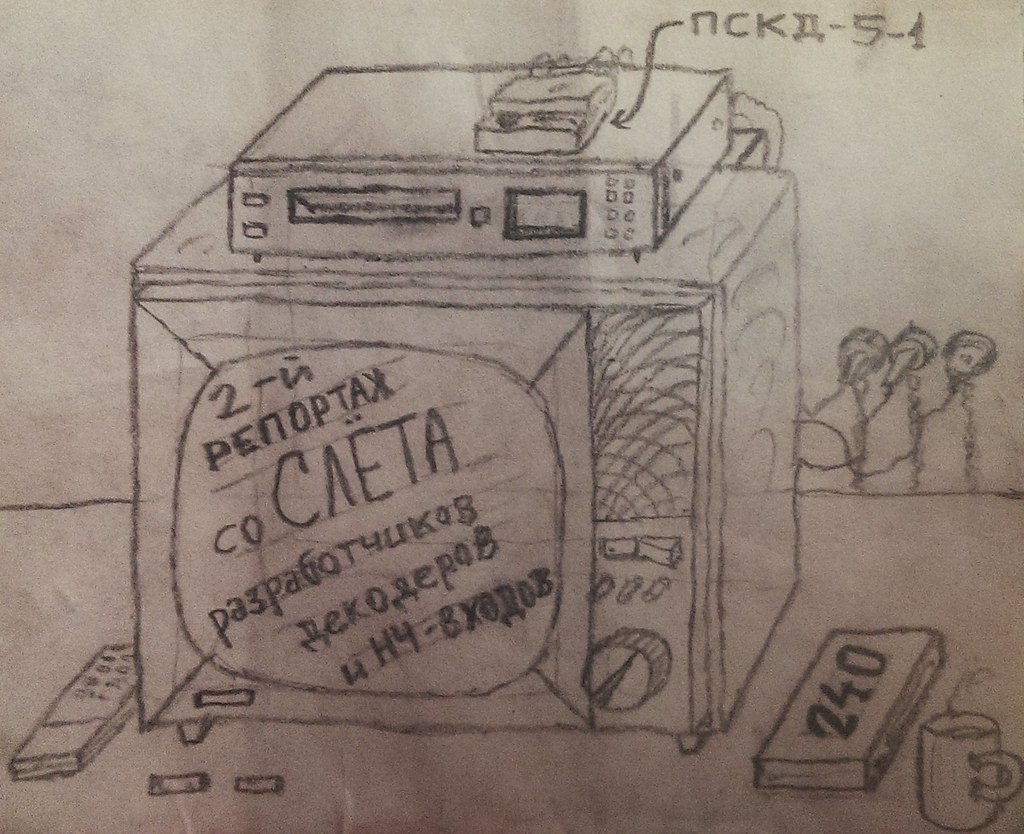 ПСКД-5-1
2-й
РЕПОРТАЖ
со СЛЁТА
разработчиков
декодеров
и НЧ-ВХОДОВ
240